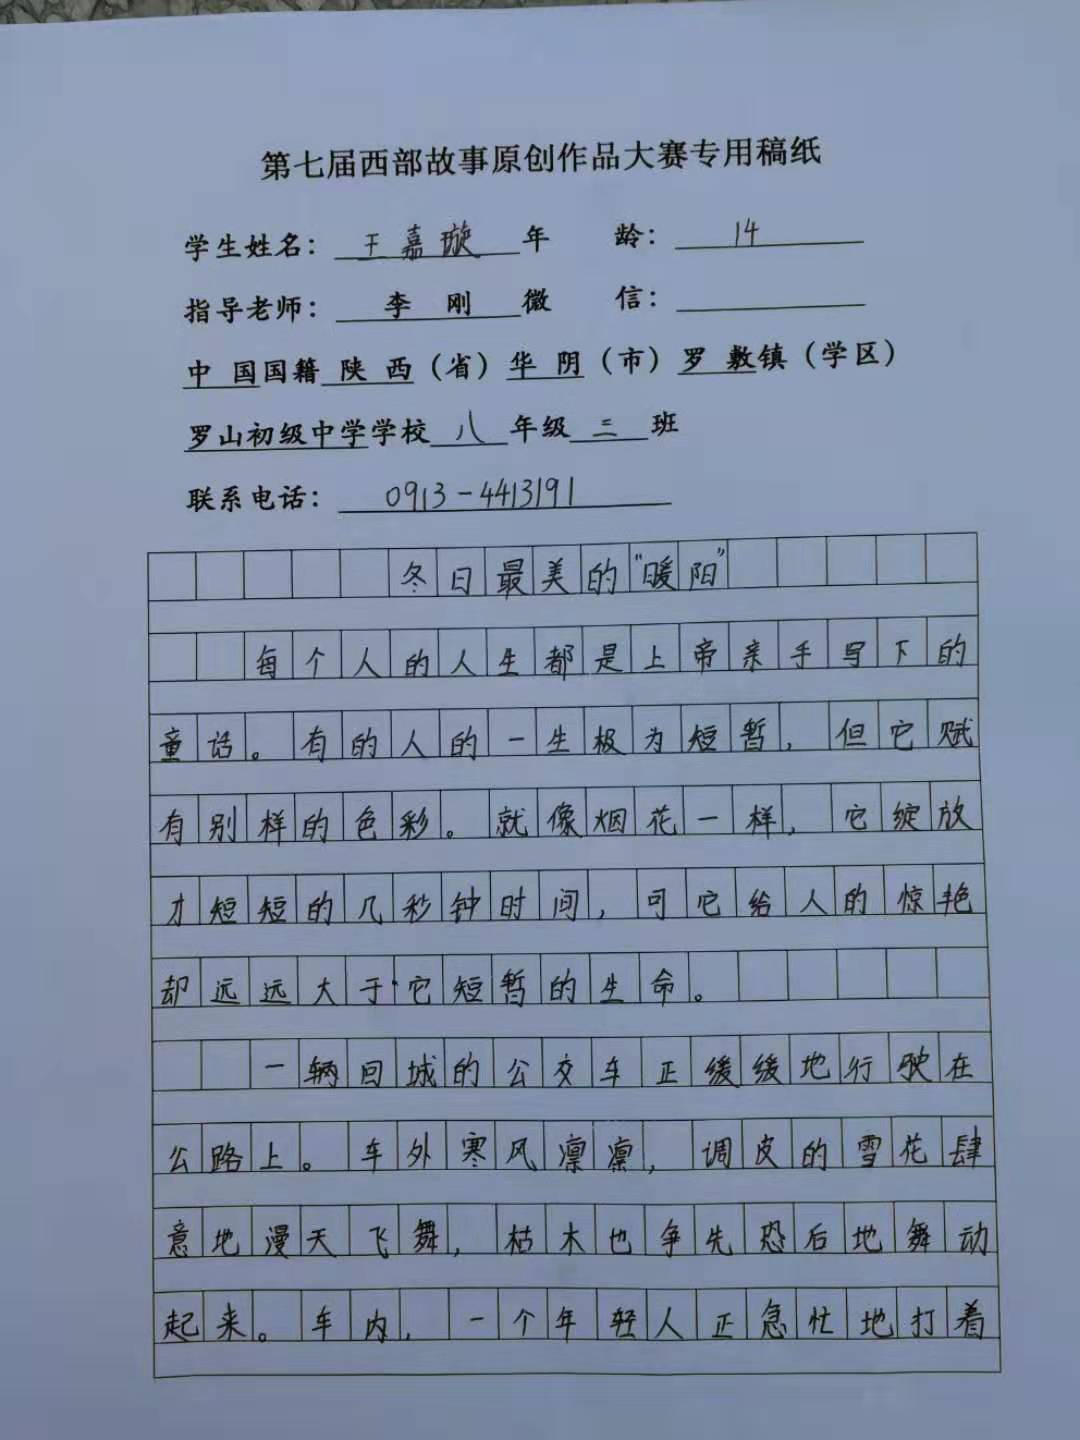 第七届西部故事原创作品大赛专用稿纸
学生姓名：王嘉璇年 龄：14
指导老师：李 刚 微 信：
中 国国籍 陕 西（省）华 阴（市）罗 敷镇（学区）
罗山初级中学学校 八 年级 三 班
联系电话：0913-4413191
冬日最美的“暖阳”
每个人的人生都是上帝亲手写下的
童话。有的人的一生极为短暂，但它赋
有别样的色彩。就像烟花一样，它绽放
才短短的几秒钟时间，可它给人的惊艳
却远远大于它短暂的生命。
一辆回城的公交车正缓缓地行驶在
公路上。车外寒风凛凛，调皮的雪花肆
意地漫天飞舞，枯木也争先恐后地舞动
起来。车内，一个年轻人正急忙地打着